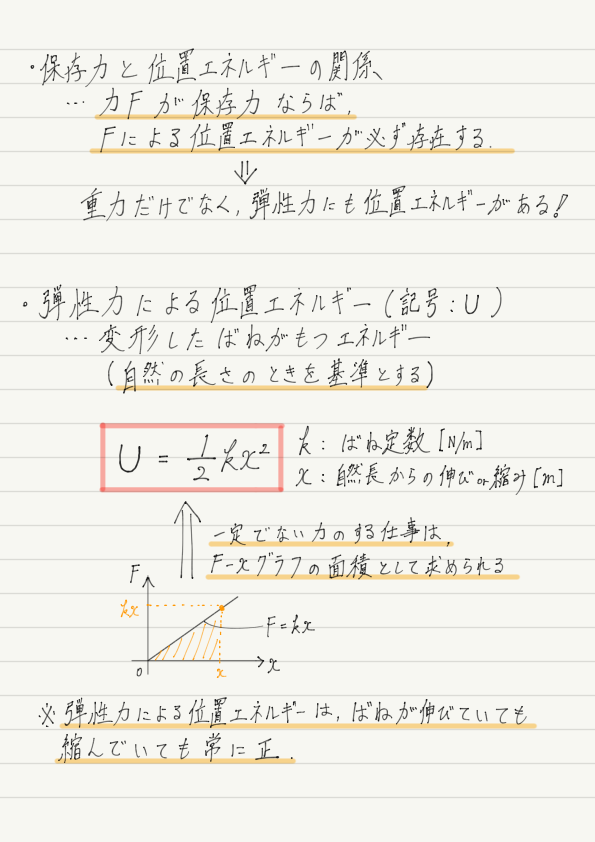 ・保存力と位置エネルギーの関係、
… 力Fが保存力ならば,
Fによる位置エネルギーが必ず存在する.
⇓
重力だけでなく, 弾性力にも位置エネルギーがある!
・弾性力による位置エネルギー (記号:U)
… 変形したばねがもつエネルギー
(自然の長さのときを基準とする)
U = 1/2 kx²
k : ばね定数 [N/m]
x : 自然長からの伸びor縮み [m]
一定でない力のする仕事は,
F-xグラフの面積として求められる
F
kx
F=kx
0
x
x
※ 弾性力による位置エネルギーは, ばねが伸びていても
縮んでいても常に正.